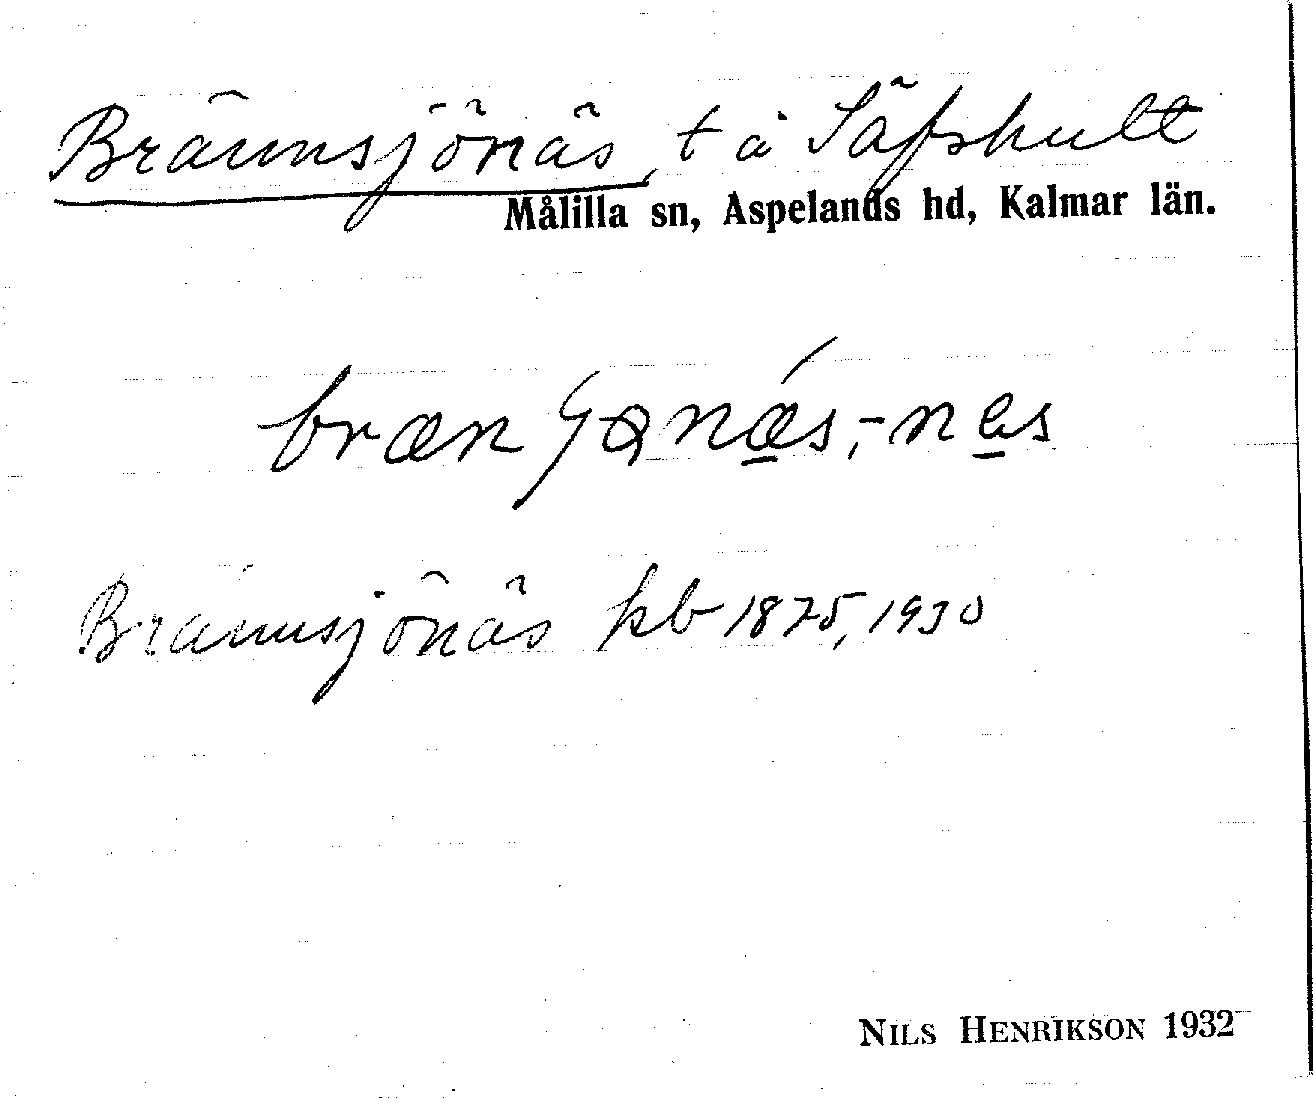 Brännsjönäs, t å Säfshult
Målilla sn, Aspelands hd, Kalmar län.
Brännsjönäs kb 1875, 1930
NILS HENRIKSON 1932